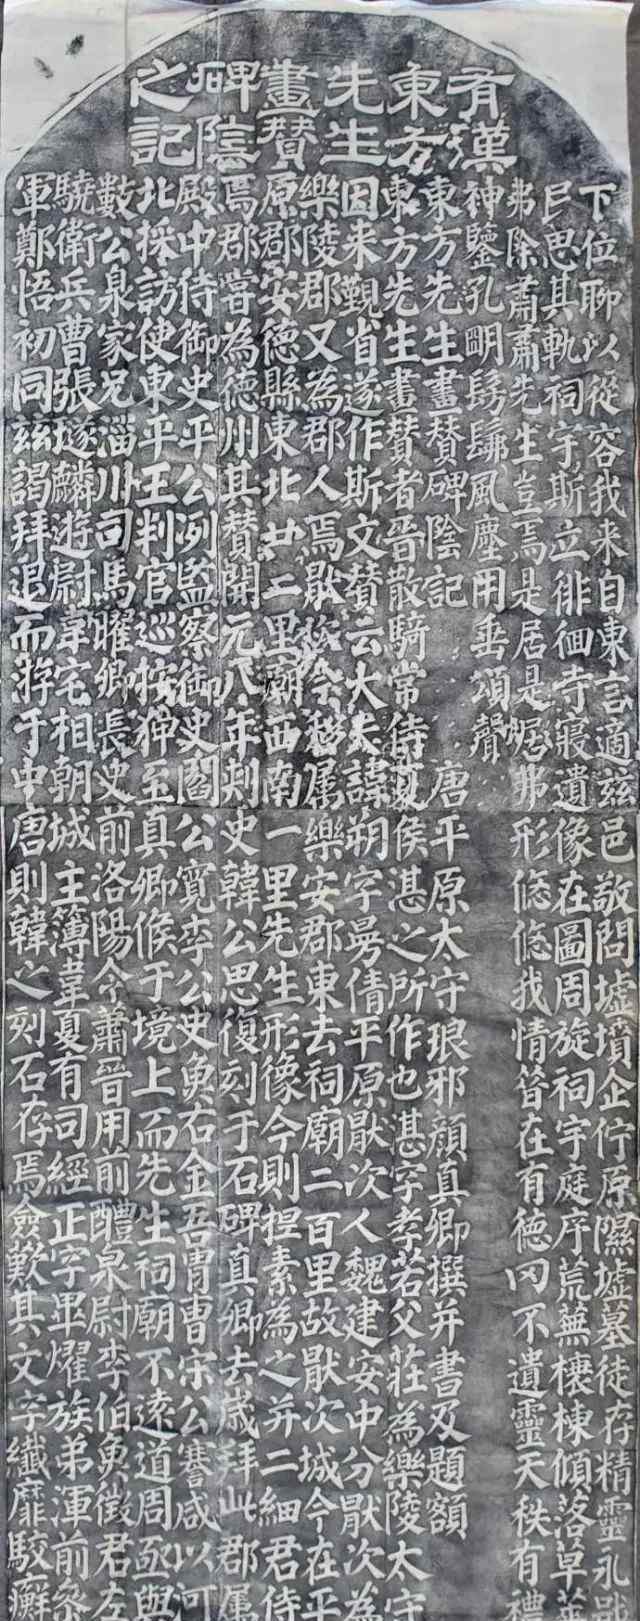 有漢
東方
先生
畫贊
碑陰
之記
下位聊以從容我来自東言適茲邑敬問墟墳企佇原隰墟墓徒存精靈永戢
民思其軌祠宇斯立徘徊寺寢遺像在圖周旋祠宇庭序荒蕪榱棟傾落草萊
弗除肅肅先生豈焉是居是居弗形悠悠我情昔在有德罔不遺靈天秩有禮
神鑒孔明髣髴風塵用垂頌聲
東方先生畫贊碑陰記 唐平原太守琅邪顏真卿撰并書及題額
東方先生畫贊者晉散騎常侍夏侯湛之所作也湛字孝若父莊為樂陵太守
因来覲省遂作斯文贊云大夫諱朔字曼倩平原厭次人魏建安中分厭次為
樂陵郡又為郡人焉厭次今移属樂安郡東去祠廟二百里故厭次城今在平
原郡安德縣東北廿二里廟西南一里先生形像今則捏素為之并二細君侍
焉郡嘗為德州其贊開元八年刾史韓公思復刻于石碑真卿去歲拜此郡属
殿中侍御史平公冽監察御史閻公寬李公史魚右金吾胄曹宋公謇咸以河
北採訪使東平王判官巡按狎至真卿候于境上而先生祠廟不遠道周亟與
數公泉家兄淄川司馬曜卿長史前洛陽令蕭晉用前醴泉尉李伯魚徵君左
驍衛兵曹張璲麟遊尉韋宅相朝城主簿韋夏有司經正字畢燿族弟渾前參
軍鄭悟初同茲謁拜退而游于中唐則韓之刻石存焉僉歎其文字纖靡駮癬